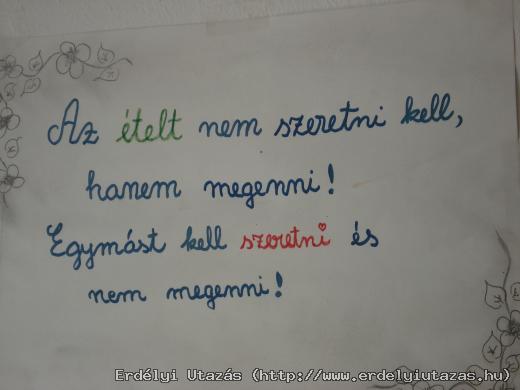 Az ételt nem szeretni kell,
hanem megenni!
Egymást kell szeretni és
nem megenni!
Erdélyi Utazás (http://www.erdelyiutazas.hu)